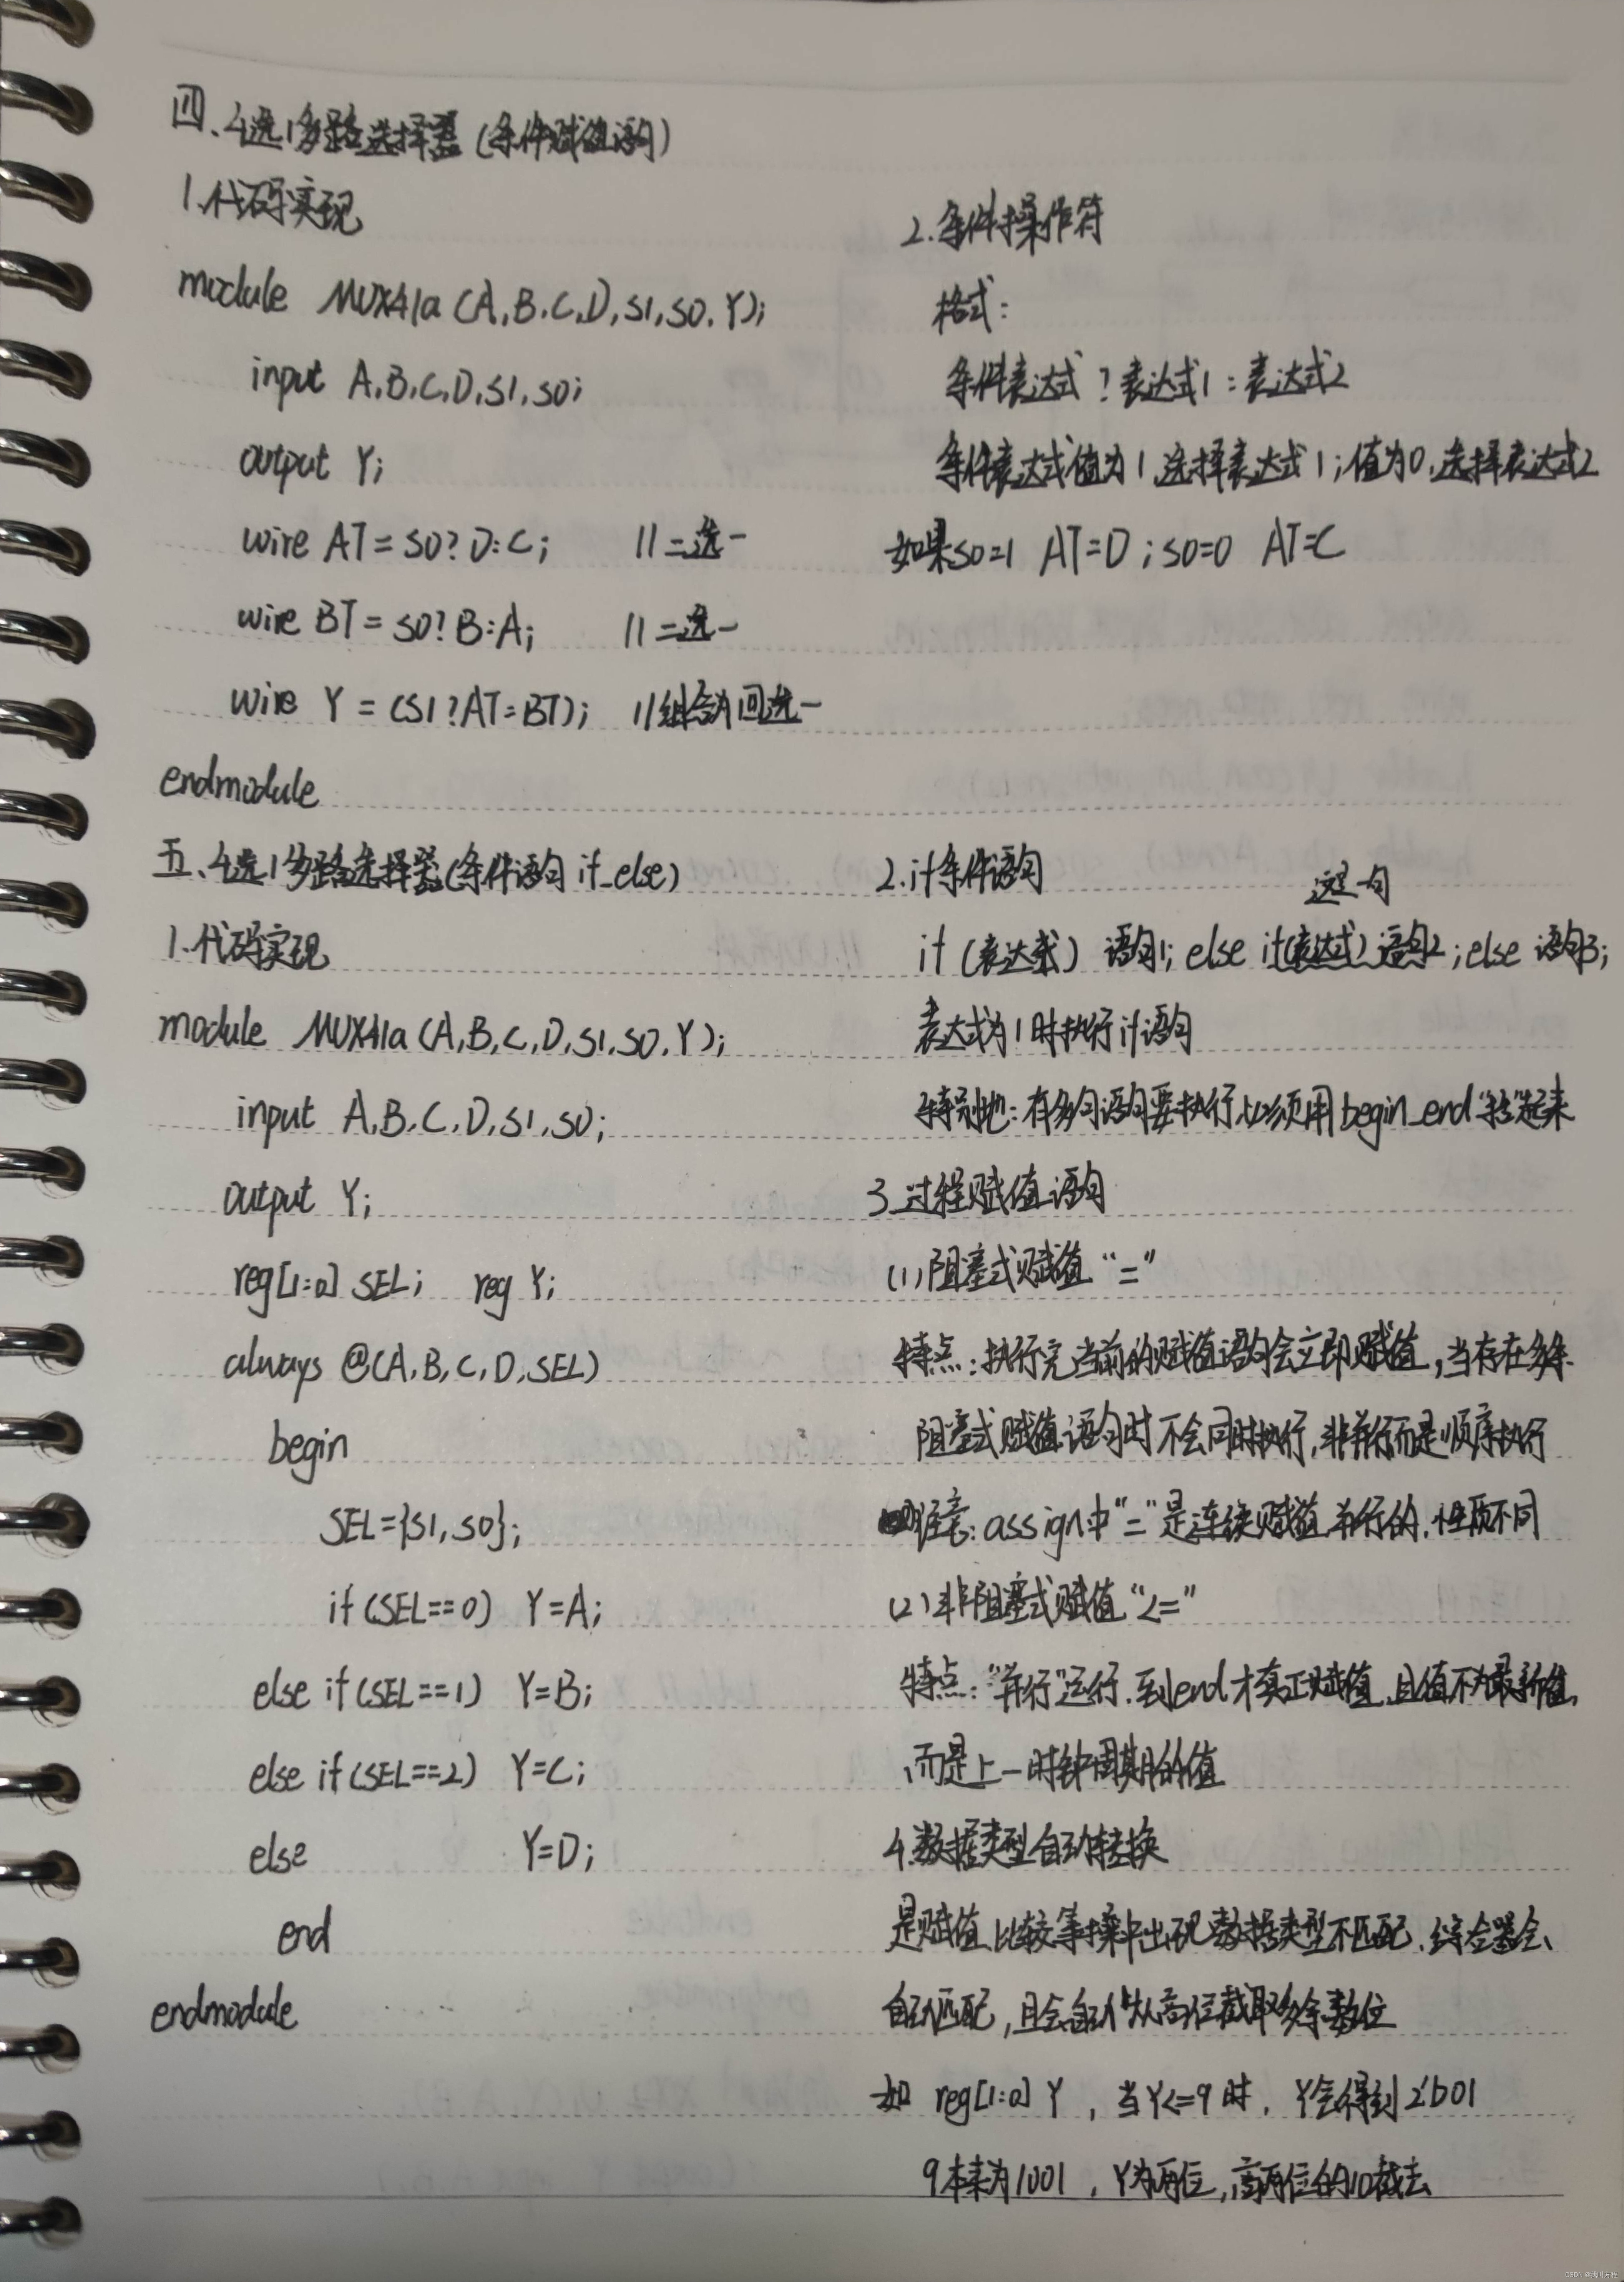 四、4选1多路选择器(条件赋值语句)
1.代码实现
module MUX41a (A,B,C,D,S1,S0,Y);
input A,B,C,D,S1,S0;
output Y;
wire AT=S0?D:C; //二选一
wire BT=S0?B:A; //二选一
wire Y=(S1?AT=BT); //组合为四选一
endmodule
2.条件操作符
格式:
条件表达式?表达式1:表达式2
条件表达式值为1,选择表达式1;值为0,选择表达式2
如果S0=1 AT=D;S0=0 AT=C
五、4选1多路选择器(条件语句 if_else)
1.代码实现
module MUX41a (A,B,C,D,S1,S0,Y);
input A,B,C,D,S1,S0;
output Y;
reg[1:0] SEL; reg Y;
always @(A,B,C,D,SEL)
begin
SEL={S1,S0};
if(SEL==0) Y=A;
else if(SEL==1) Y=B;
else if(SEL==2) Y=C;
else Y=D;
end
endmodule
2.if条件语句
这是一句
if(表达式) 语句1; else if(表达式) 语句2; else 语句3;
表达式为1时执行if语句
特别地:有多句语句要执行,必须用begin_end"括"起来
3.过程赋值语句
(1)阻塞式赋值"="
特点:执行完当前的赋值语句会立即赋值,当存在多条
阻塞式赋值语句时不会同时执行,非并行而是顺序执行
注意:assign中"="是连续赋值,并行的,性质不同
(2)非阻塞式赋值"<="
特点:"并行"运行,到end才真正赋值,且值不为最新值,
而是上一时钟周期的值
4.数据类型自动转换
是赋值、比较等操中出现数据类型不匹配,综合器会
自动匹配,且会自动从高位截取多余数位
如 reg[1:0] Y,当Y<=9时,Y会得到2'b01
9本来为1001,Y为两位,高两位的10截去
CSDN @我叫方程